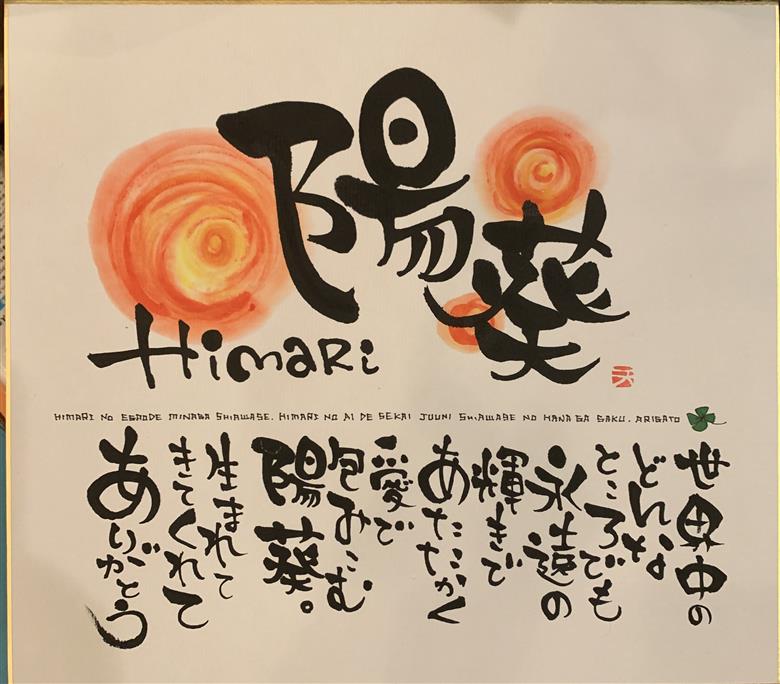 陽葵
Himari
天
HIMARI NO EGAODE MINAGA SHIAWASE. HIMARI NO AI DE SEKAI JUUNI SHIAWASE NO HANA GA SAKU. ARIGATO
世界中の
どんな
ところでも
永遠の
輝きで
あたたかく
愛で
包みこむ
陽葵。
生まれて
きてくれて
ありがとう